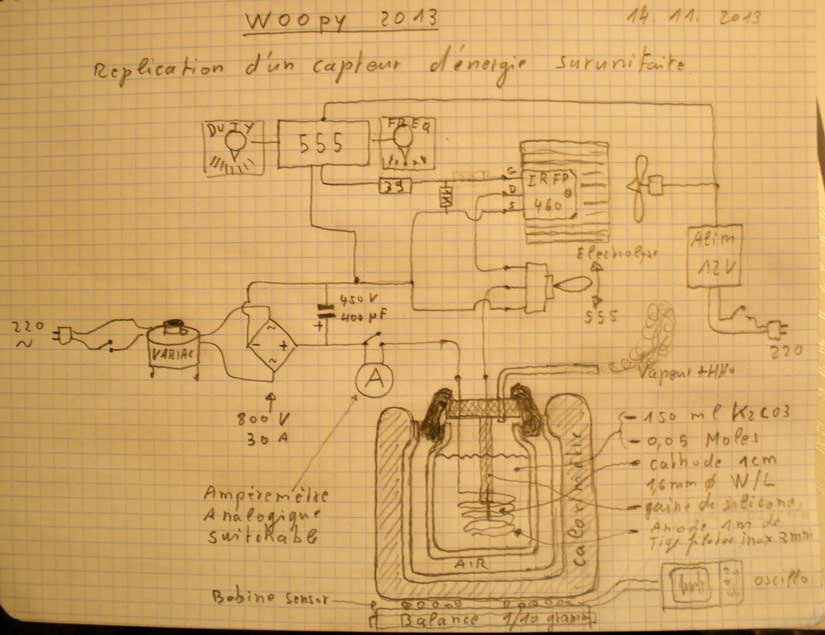 WOOPY 2013
14.11.2013
Replication d'un capteur d'énergie surunitaire
DUTY
555
FREQ
39
1K
G
D
S
IRFP
460
Alim
12V
Electrolyse
555
220
~
VARIAC
~
- +
~
450V
400µF
+
A
800V
30A
220
Vapeur + HHO
- 150 ml K2CO3
- 0,05 Moles
- cathode 1cm
1,6mm ø W/L
- gaine de silicone
- Anode 1m de
Tige filetée inox 3mm
Ampèremètre
Analogique
Switchable
calorimètre
AIR
oscillo
Bobine sensor
Balance 1/10 gramme